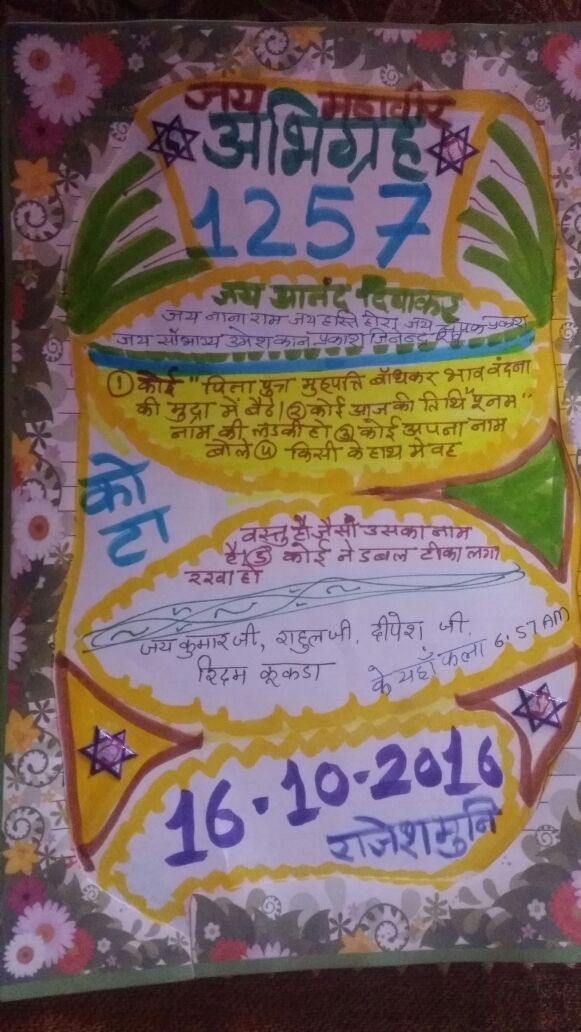 जय महावीर
अभिग्रह
1257
जय आनंद दिवाकर
जय नाना राम जय हस्ति हीरा जय प्रकाश
जय सौभाग्य उमेश कान प्रकाश जिनेन्द्र
① कोई "पिता पुत्र मुहपत्ति बाँधकर भाव वंदना
की मुद्रा में बैठे। ② कोई आज की तिथि "पूनम"
नाम की लडकी हो ③ कोई अपना नाम
बोले ④ किसी के हाथ में वह
कोटा
वस्तु हो जैसा उसका नाम
है। ⑤ कोई ने डबल टीका लगा
रखा हो
जय कुमार जी, राहुल जी, दीपेश जी,
रिदम कूकडा
के यहाँ फला 6.57 AM
16-10-2016
राजेशमुनि